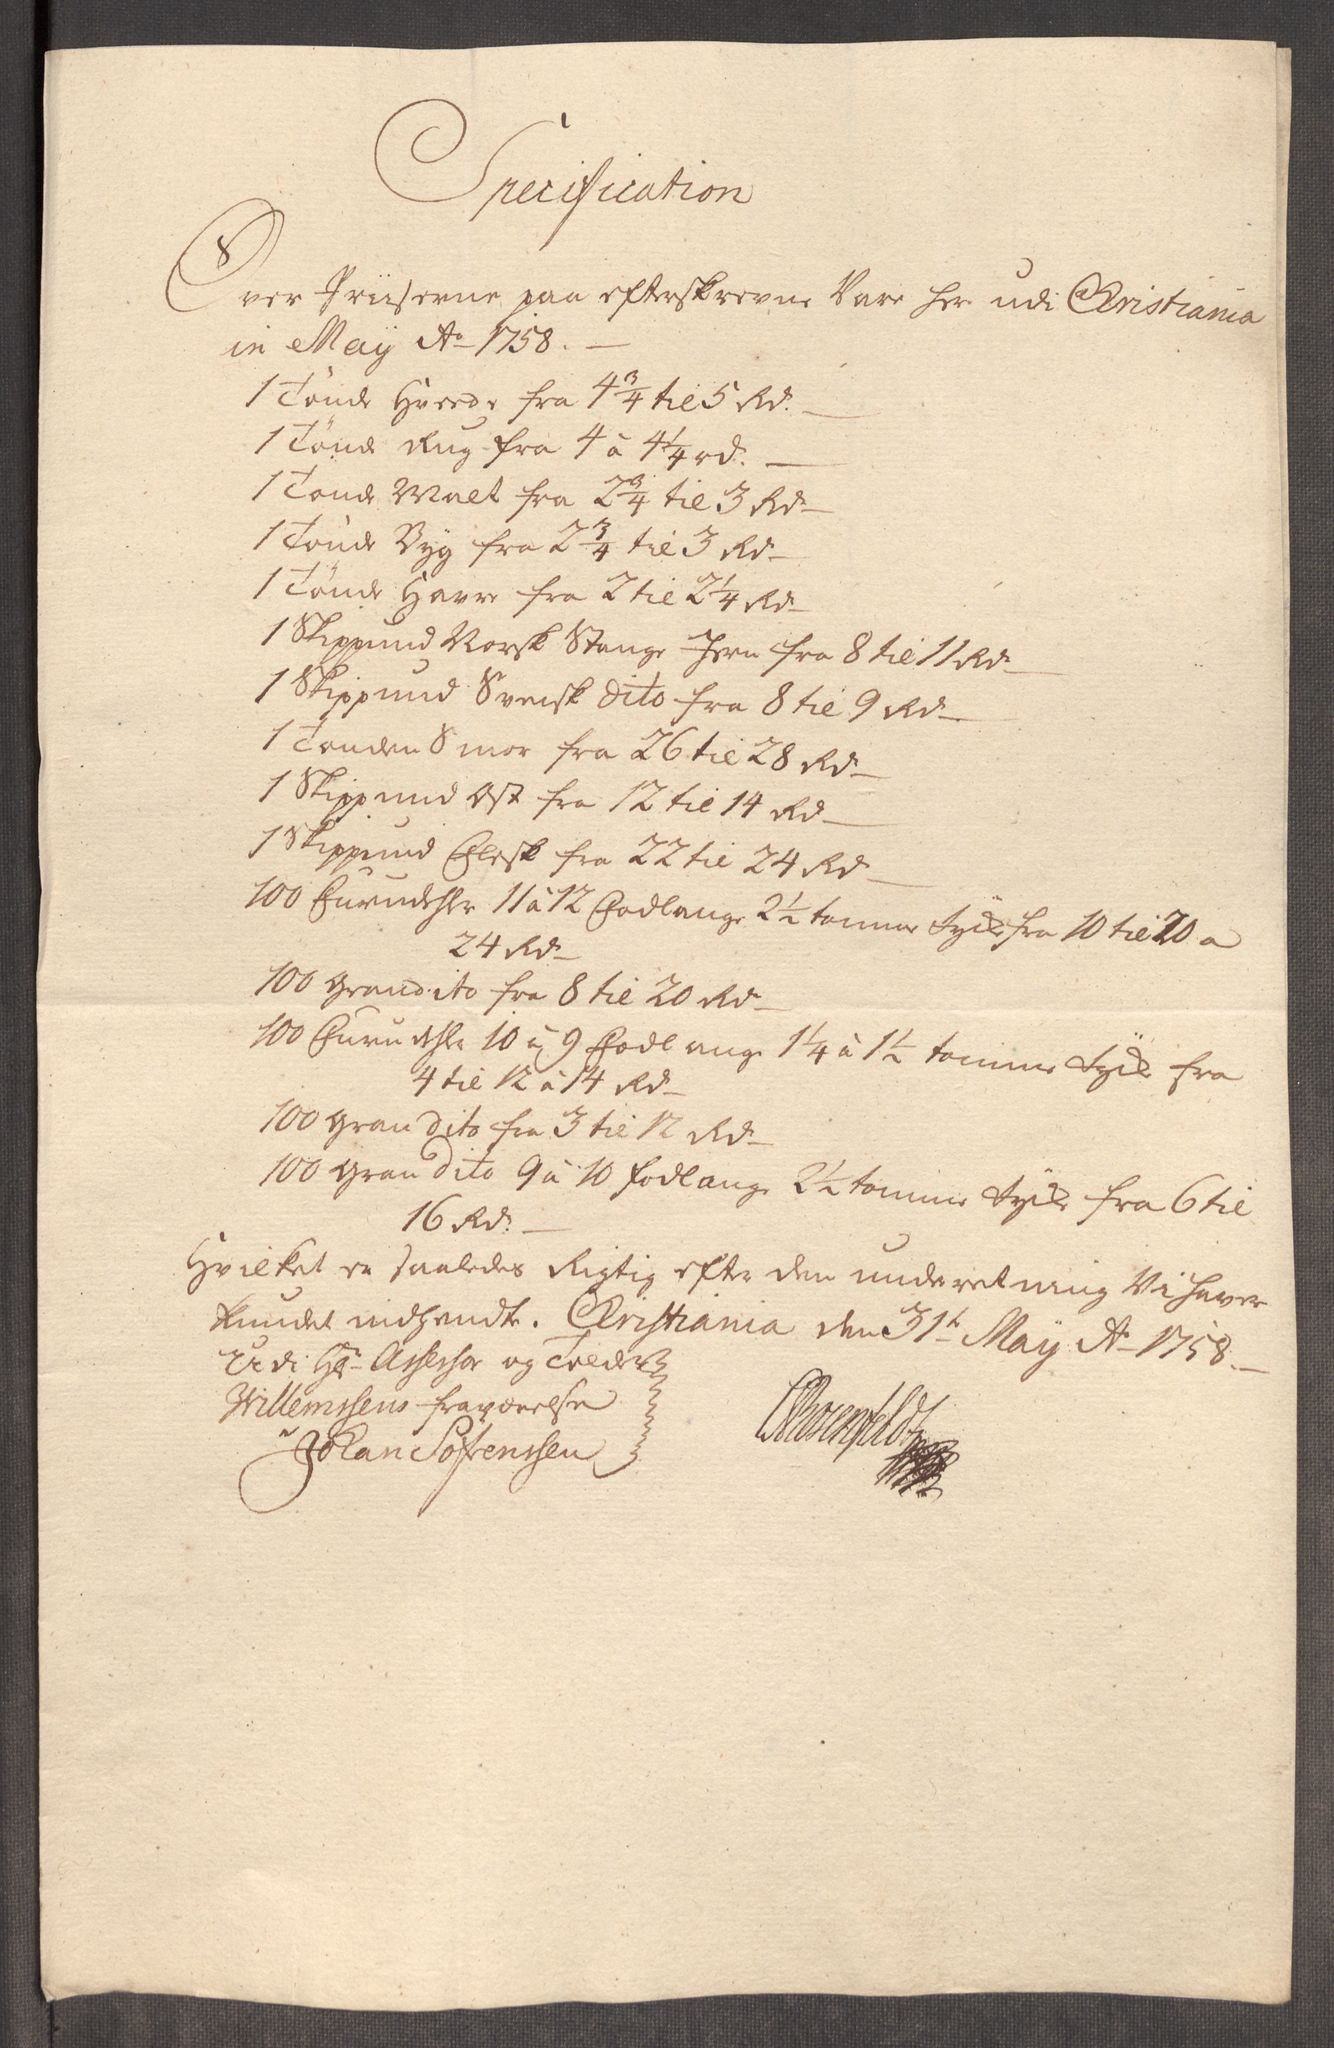 Specification
Over Priiserne paa efterskrevne Vare her udi Christiania
in Maÿ Ao 1758.
1 Tönde Hvede fra 4 3/4 til 5 Rd.
1 Tönde Rug fra 4 à 4 1/4 rd.
1 Tönde Malt fra 2 3/4 til 3 Rd
1 Tönde Byg fra 2 3/4 til 3 Rd
1 Tönde Havre fra 2 til 2 1/4 Rd
1 Skippund Norsk Stange Jern fra 8 til 11 Rd
1 Skippund Svensk dito fra 8 til 9 Rd
1 Tønden Smör fra 26 til 28 Rd
1 Skippund Ost fra 12 til 14 Rd
1 Skippund Flesk fra 22 til 24 Rd
100 Furudehle 11 à 12 Fodlange 2 1/2 tomme tyke fra 10 til 20 a
24 Rd
100 Gran dito fra 8 til 20 Rd
100 Furudehle 10 à 9 Fodlange 1 1/4 à 1 1/2 tomme tyke fra
4 til 12 à 14 Rd
100 Gran dito fra 3 til 12 Rd
100 Gran dito 9 à 10 fodlange 2 1/2 tomme tyke fra 6 til
16 Rd.
Hvilket er saaledes Rigtig efter den underretning Vi haver
kundet indhendte. Christiania den 31t Maÿ Ao 1758.
Udi Hr Assessor og Tolder
Willemssens fraværelse
Johan Sørenssen
Rosenfeldt